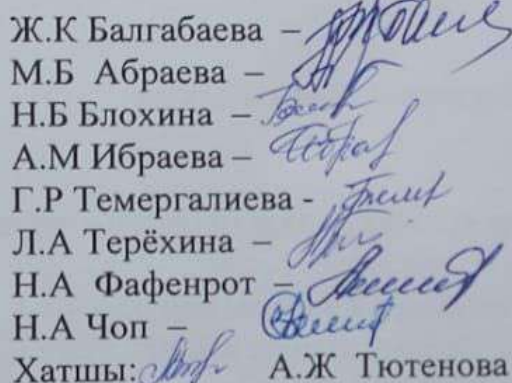 Ж.К Балгабаева –
М.Б Абраева –
Н.Б Блохина –
А.М Ибраева –
Г.Р Темергалиева -
Л.А Терёхина –
Н.А Фафенрот –
Н.А Чоп –
Хатшы: А.Ж Тютенова